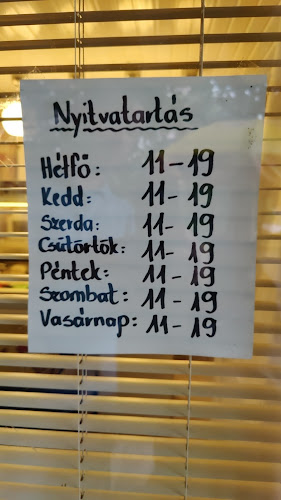 Nyitvatartás
Hétfő: 11-19
Kedd: 11-19
Szerda: 11-19
Csütörtök: 11-19
Péntek: 11-19
Szombat: 11-19
Vasárnap: 11-19